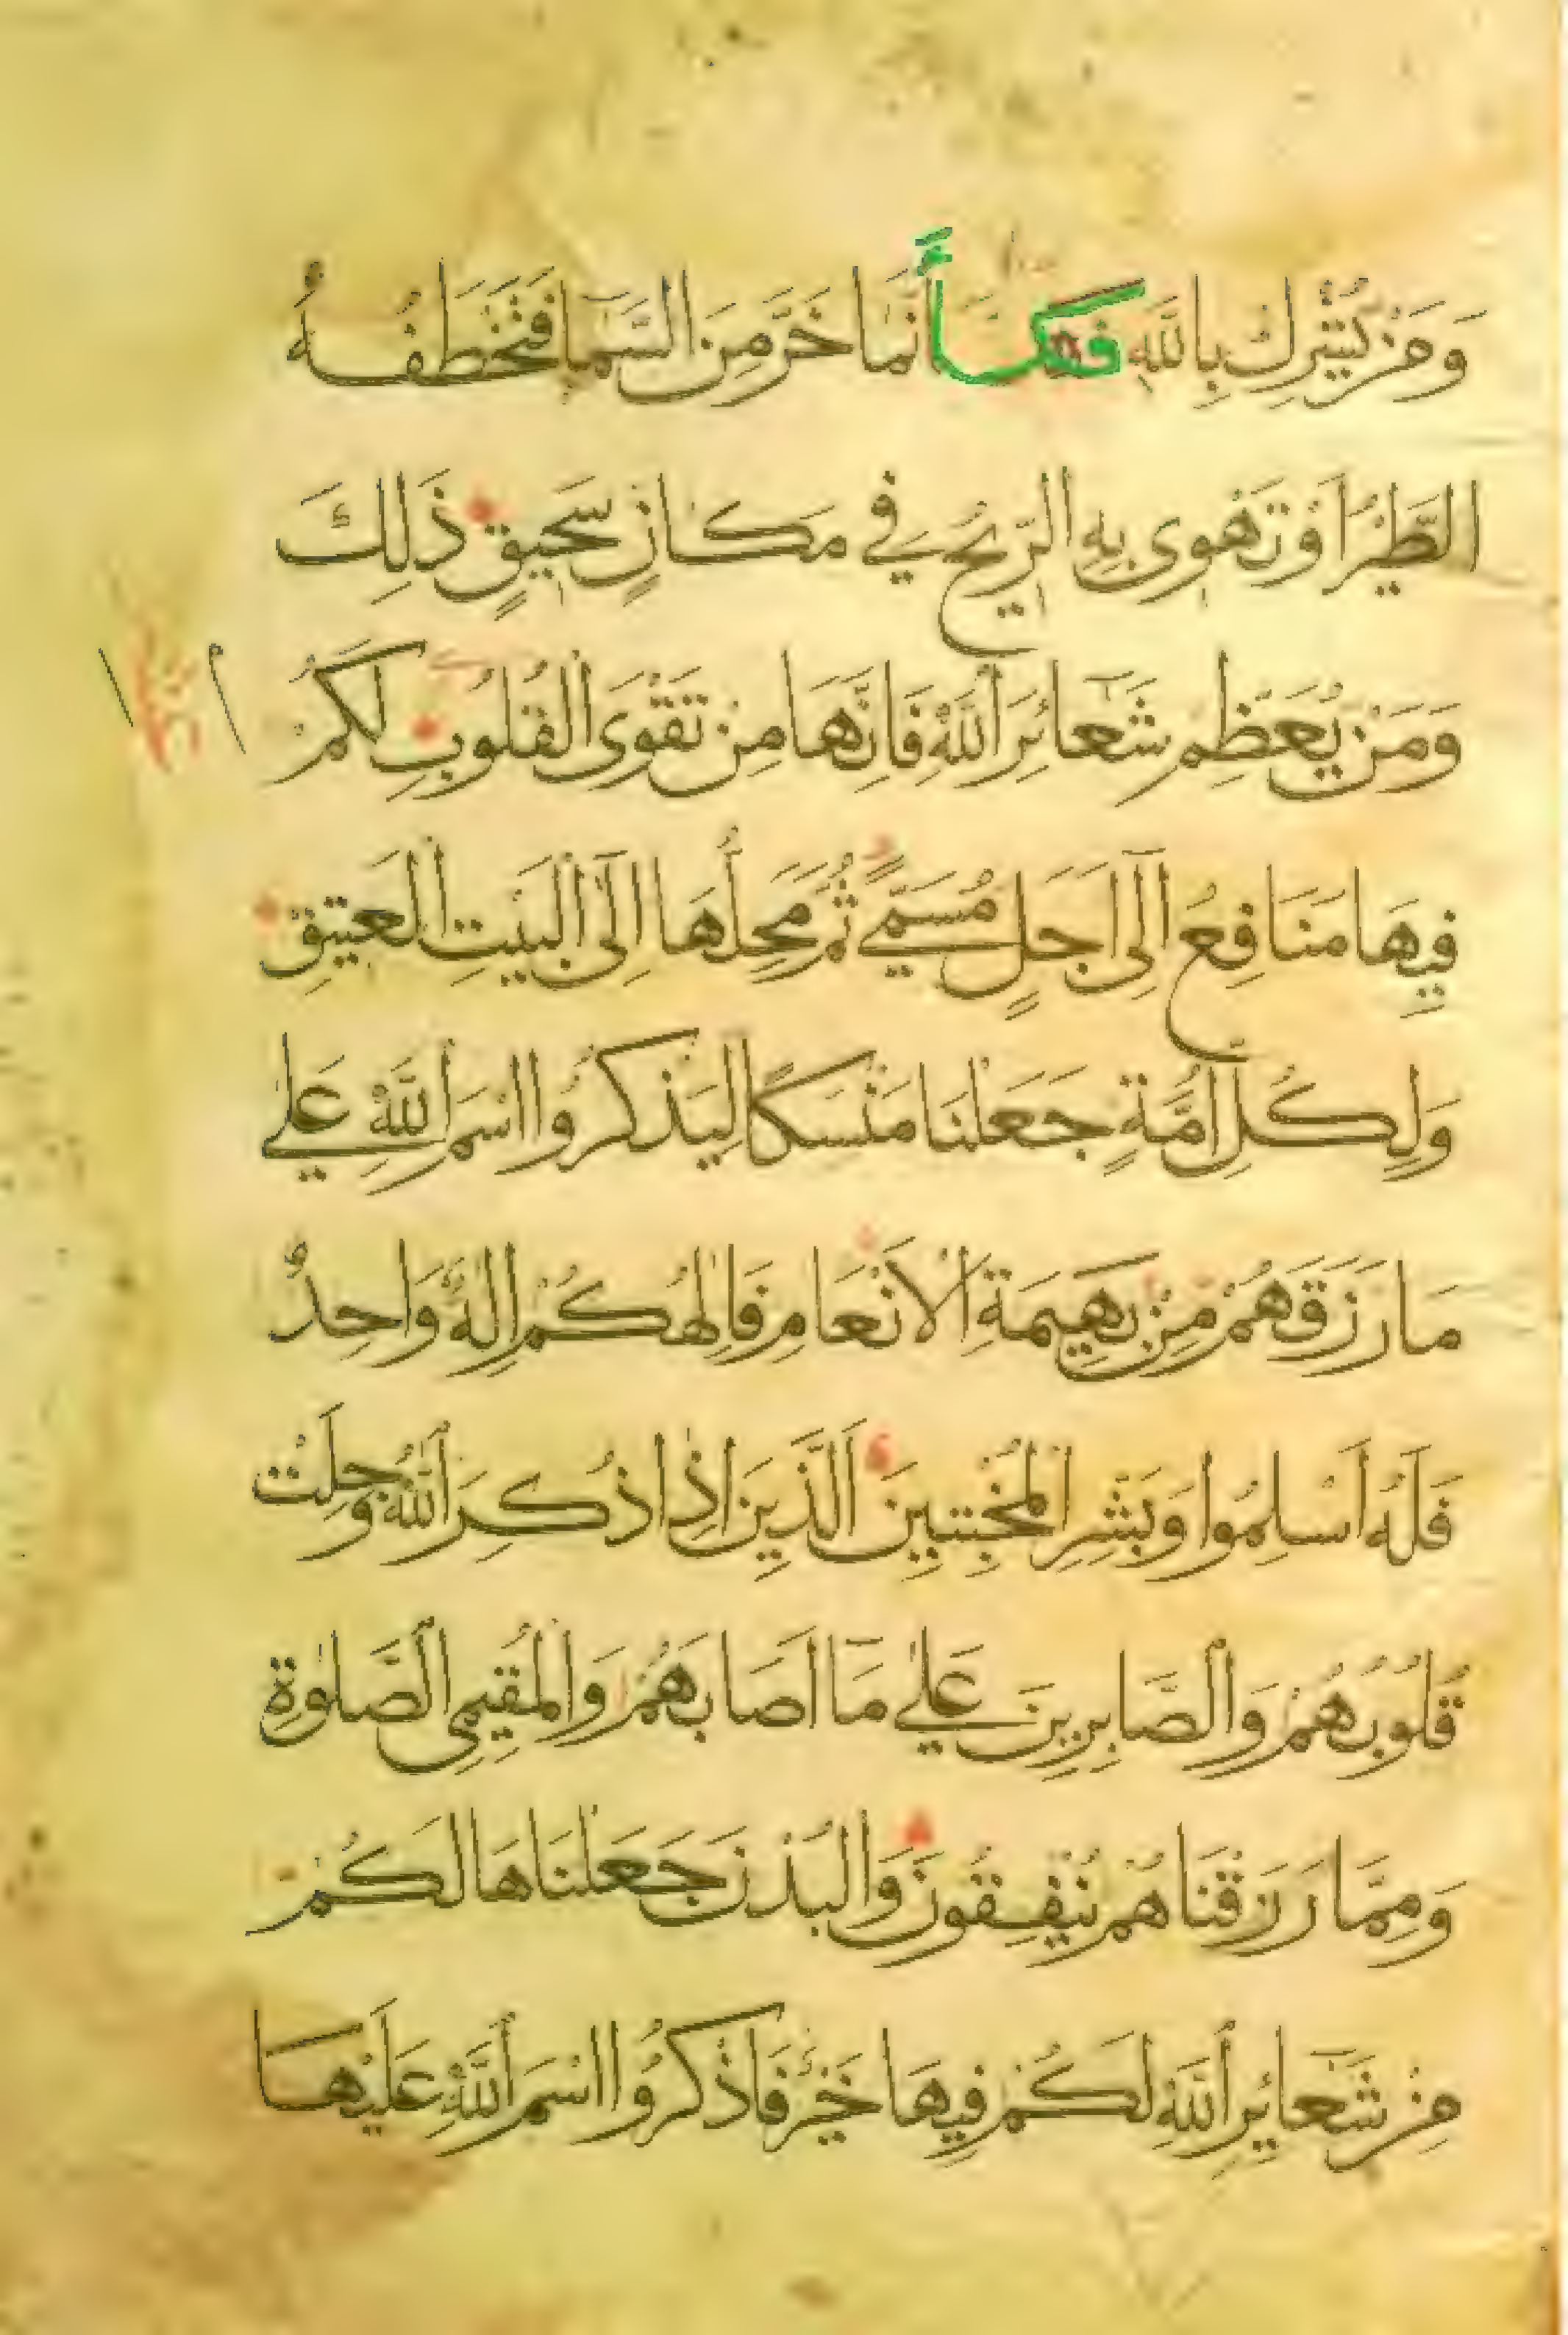 وَمَنْ يُشْرِكْ بِاللَّهِ فَكَأَنَّمَا خَرَّ مِنَ السَّمَا فَتَخْطَفُهُ
الطَّيْرُ اَوْ تَهْوِى بِهِ الرِّيْحُ فِي مَكَانٍ سَحِيقٍ ذَلِكَ
وَمَنْ يُعَظِّمْ شَعَائِرَ اللَّهِ فَاِنَّهَا مِنْ تَقْوَى الْقُلُوبِ لَكُمْ
فِيهَا مَنَافِعُ اِلَى اَجَلٍ مُسَمًّي ثُمَّ مَحِلُّهَا اِلَى الْبَيْتِ الْعَتِيقِ
وَلِكُلِّ اُمَّةٍ جَعَلْنَا مَنْسَكًا لِيَذْكُرُوا اسْمَ اللَّهِ عَلي
مَا رَزَقَهُمْ مِنْ بَهِيمَةِ الْاَنْعَامِ فَاِلٰهُكُمْ اِلٰهٌ وَاحِدٌ
فَلَهُ اَسْلِمُوا وَبَشِّرِ الْمُخْبِتِينَ اَلَّذِينَ اِذَا ذُكِرَ اللَّهُ وَجِلَتْ
قُلُوبُهُمْ وَالصَّابِرِينَ عَلي مَا اَصَابَهُمْ وَالْمُقِيمِى الصَّلٰوةِ
وَمِمَّا رَزَقْنَاهُمْ يُنْفِقُونَ وَالْبُدْنَ جَعَلْنَاهَا لَكُمْ
مِنْ شَعَائِرِ اللَّهِ لَكُمْ فِيهَا خَيْرٌ فَاذْكُرُوا اسْمَ اللَّهِ عَلَيْهَا